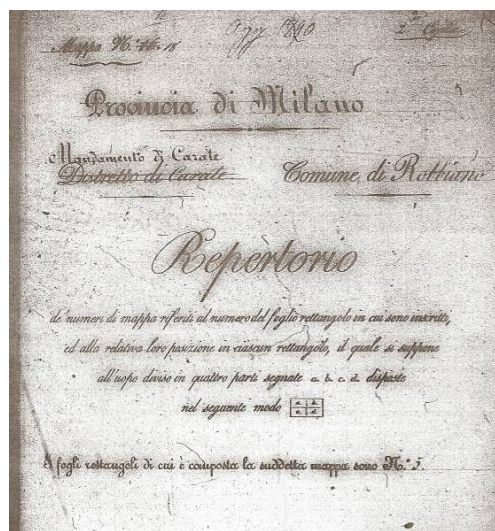 Mappa N.° 18
Agg 1890
Provincia di Milano
Mandamento di Carate
Distretto di Carate
Comune di Robbiano
Repertorio
de' numeri di mappa riferiti al numero del foglio rettangolo in cui sono inscritti,
ed alla relativa loro posizione in ciascun rettangolo, il quale si suppone
all'uopo diviso in quattro parti segnate a. b. c. d. disposte
nel seguente modo
I fogli rettangoli di cui è composta la suddetta mappa sono N.° 5.